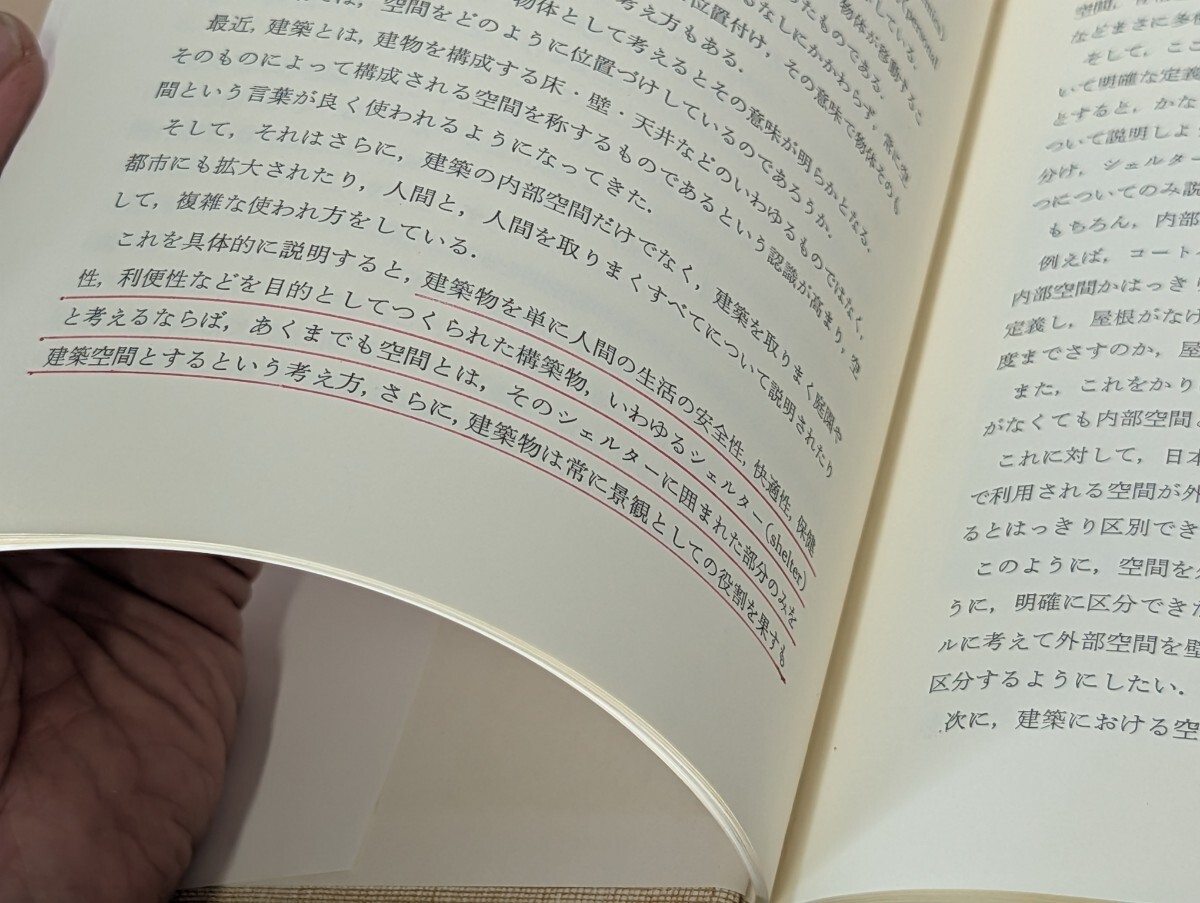 personal
物体が移動するこ
している.
ったものである.
るなしにかかわらず, 常に空
位置付け, その意味で物体そのも
物体として考えるとその意味が明らかとなる.
考え方もある.
は, 空間をどのように位置づけしているのであろうか.
最近, 建築とは, 建物を構成する床・壁・天井などのいわゆるものではなく,
そのものによって構成される空間を称するものであるという認識が高まり, 空
間という言葉が良く使われるようになってきた.
そして, それはさらに, 建築の内部空間だけでなく, 建築を取りまく庭園や
都市にも拡大されたり, 人間と, 人間を取りまくすべてについて説明されたり
して, 複雑な使われ方をしている.
これを具体的に説明すると, 建築物を単に人間の生活の安全性, 快適性, 保健
性, 利便性などを目的としてつくられた構築物, いわゆるシェルター(shelter)
と考えるならば, あくまでも空間とは, そのシェルターに囲まれた部分のみを
建築空間とするという考え方, さらに, 建築物は常に景観としての役割を果すも
などまさに多様
そして, ここ
いて明確な定義
とすると, かな
ついて説明しよ
分け, シェルター
つについてのみ説
もちろん, 内部
例えば, コート
内部空間かはっきり
定義し, 屋根がなけ
度までさすのか, 屋
また, これをかり
がなくても内部空間
これに対して, 日本
で利用される空間が外
るとはっきり区別でき
このように, 空間を
うに, 明確に区分できた
ルに考えて外部空間を壁
区分するようにしたい.
次に, 建築における空